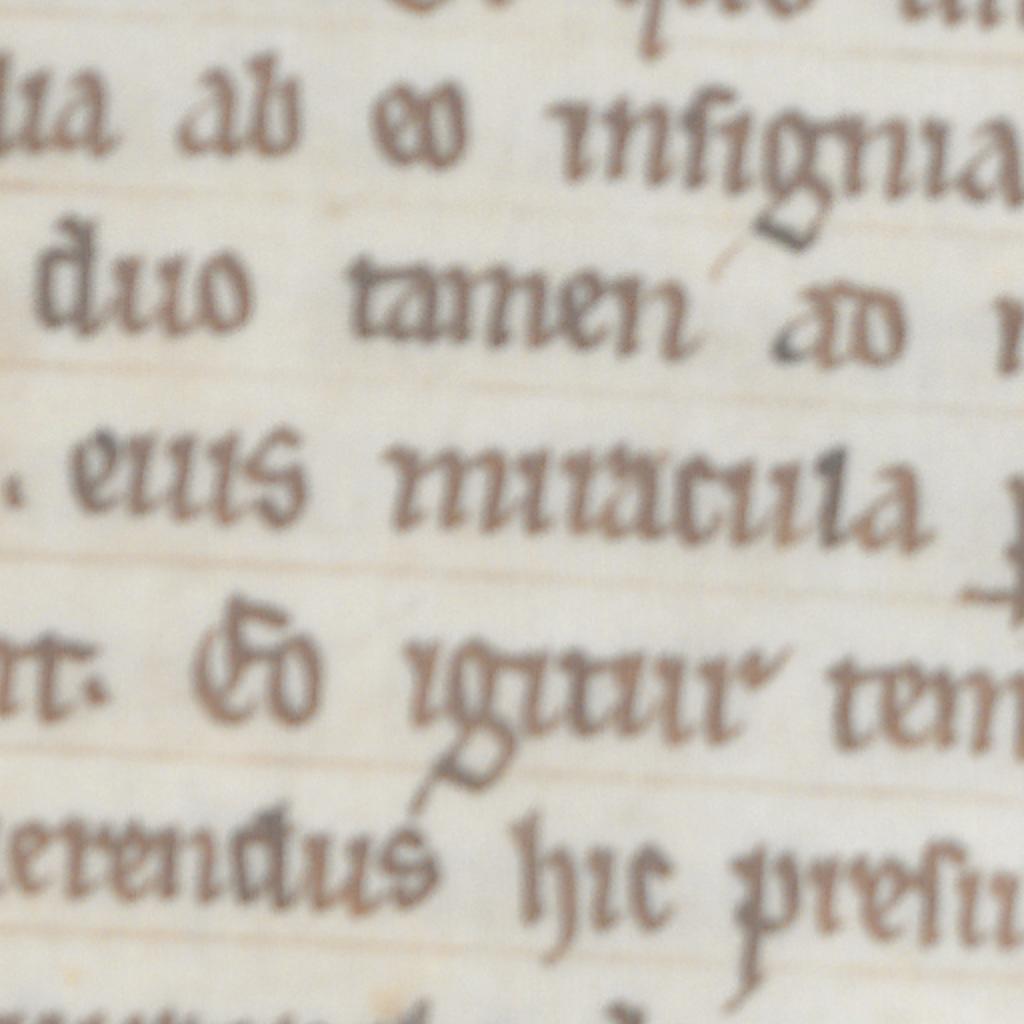 lia ab eo insignia
duo tamen ad
. eius miracula
nt. Eo igitur tem
erendus hic presu